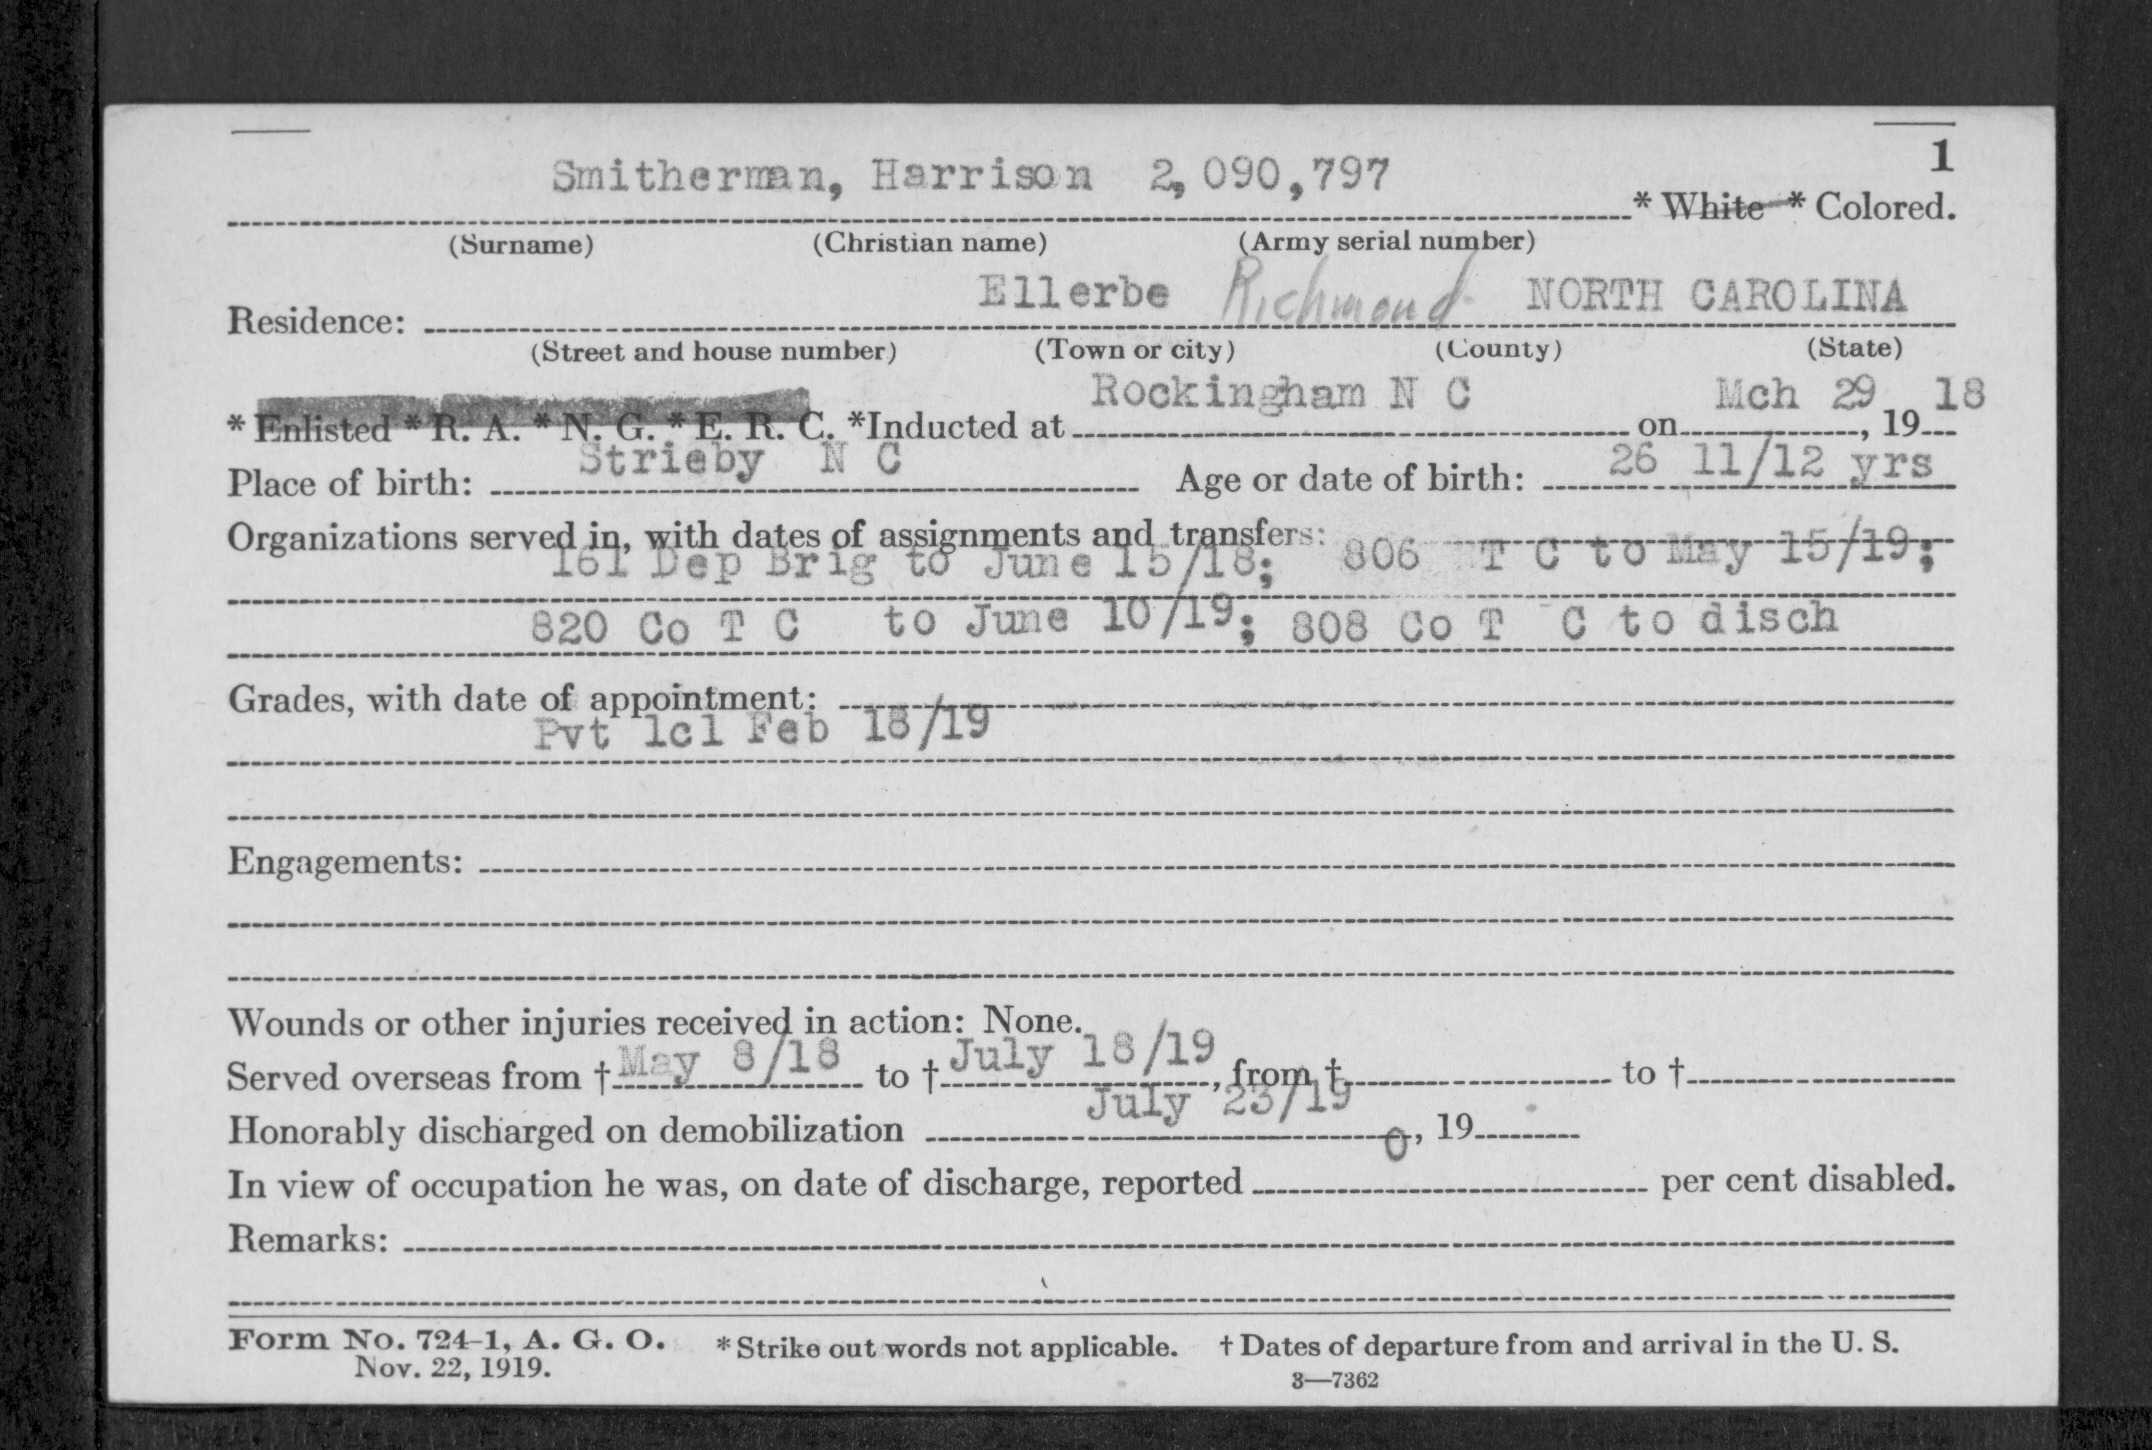 1
Smitherman, Harrison 2,090,797
* White * Colored.
(Surname) (Christian name) (Army serial number)
Residence: Ellerbe Richmond NORTH CAROLINA
(Street and house number) (Town or city) (County) (State)
* Enlisted * R. A. * N. G. * E. R. C. *Inducted at Rockingham N C on Mch 29, 19 18
Place of birth: Strieby N C Age or date of birth: 26 11/12 yrs
Organizations served in, with dates of assignments and transfers:
161 Dep Brig to June 15/18; 806 T C to May 15/19;
820 Co T C to June 10/19; 808 Co T C to disch
Grades, with date of appointment:
Pvt 1cl Feb 18/19
Engagements:
Wounds or other injuries received in action: None.
Served overseas from † May 8/18 to † July 18/19, from † to †
Honorably discharged on demobilization July 23/19, 19
In view of occupation he was, on date of discharge, reported 0 per cent disabled.
Remarks:
Form No. 724-1, A. G. O. * Strike out words not applicable. † Dates of departure from and arrival in the U. S.
Nov. 22, 1919. 3—7362